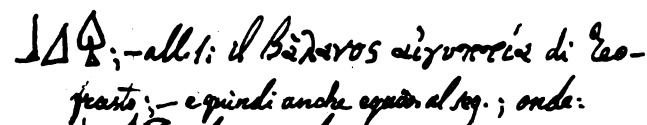 ;—all. 1; il Βάλανος αἰγυπτία di Teo-
frasto;— e quindi anche equiv. al seg.; onde: